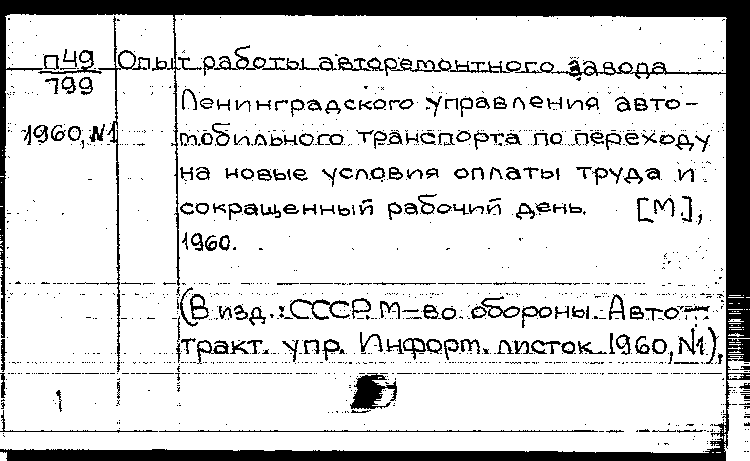 п49 Опыт работы авторемонтного завода
799
Ленинградского управления авто-
1960, №1 мобильного транспорта по переходу
на новые условия оплаты труда и
сокращенный рабочий день. [М.],
1960.
(В изд.: СССР. М-во обороны. Авто-
тракт. упр. Информ. листок. 1960, №1).
1